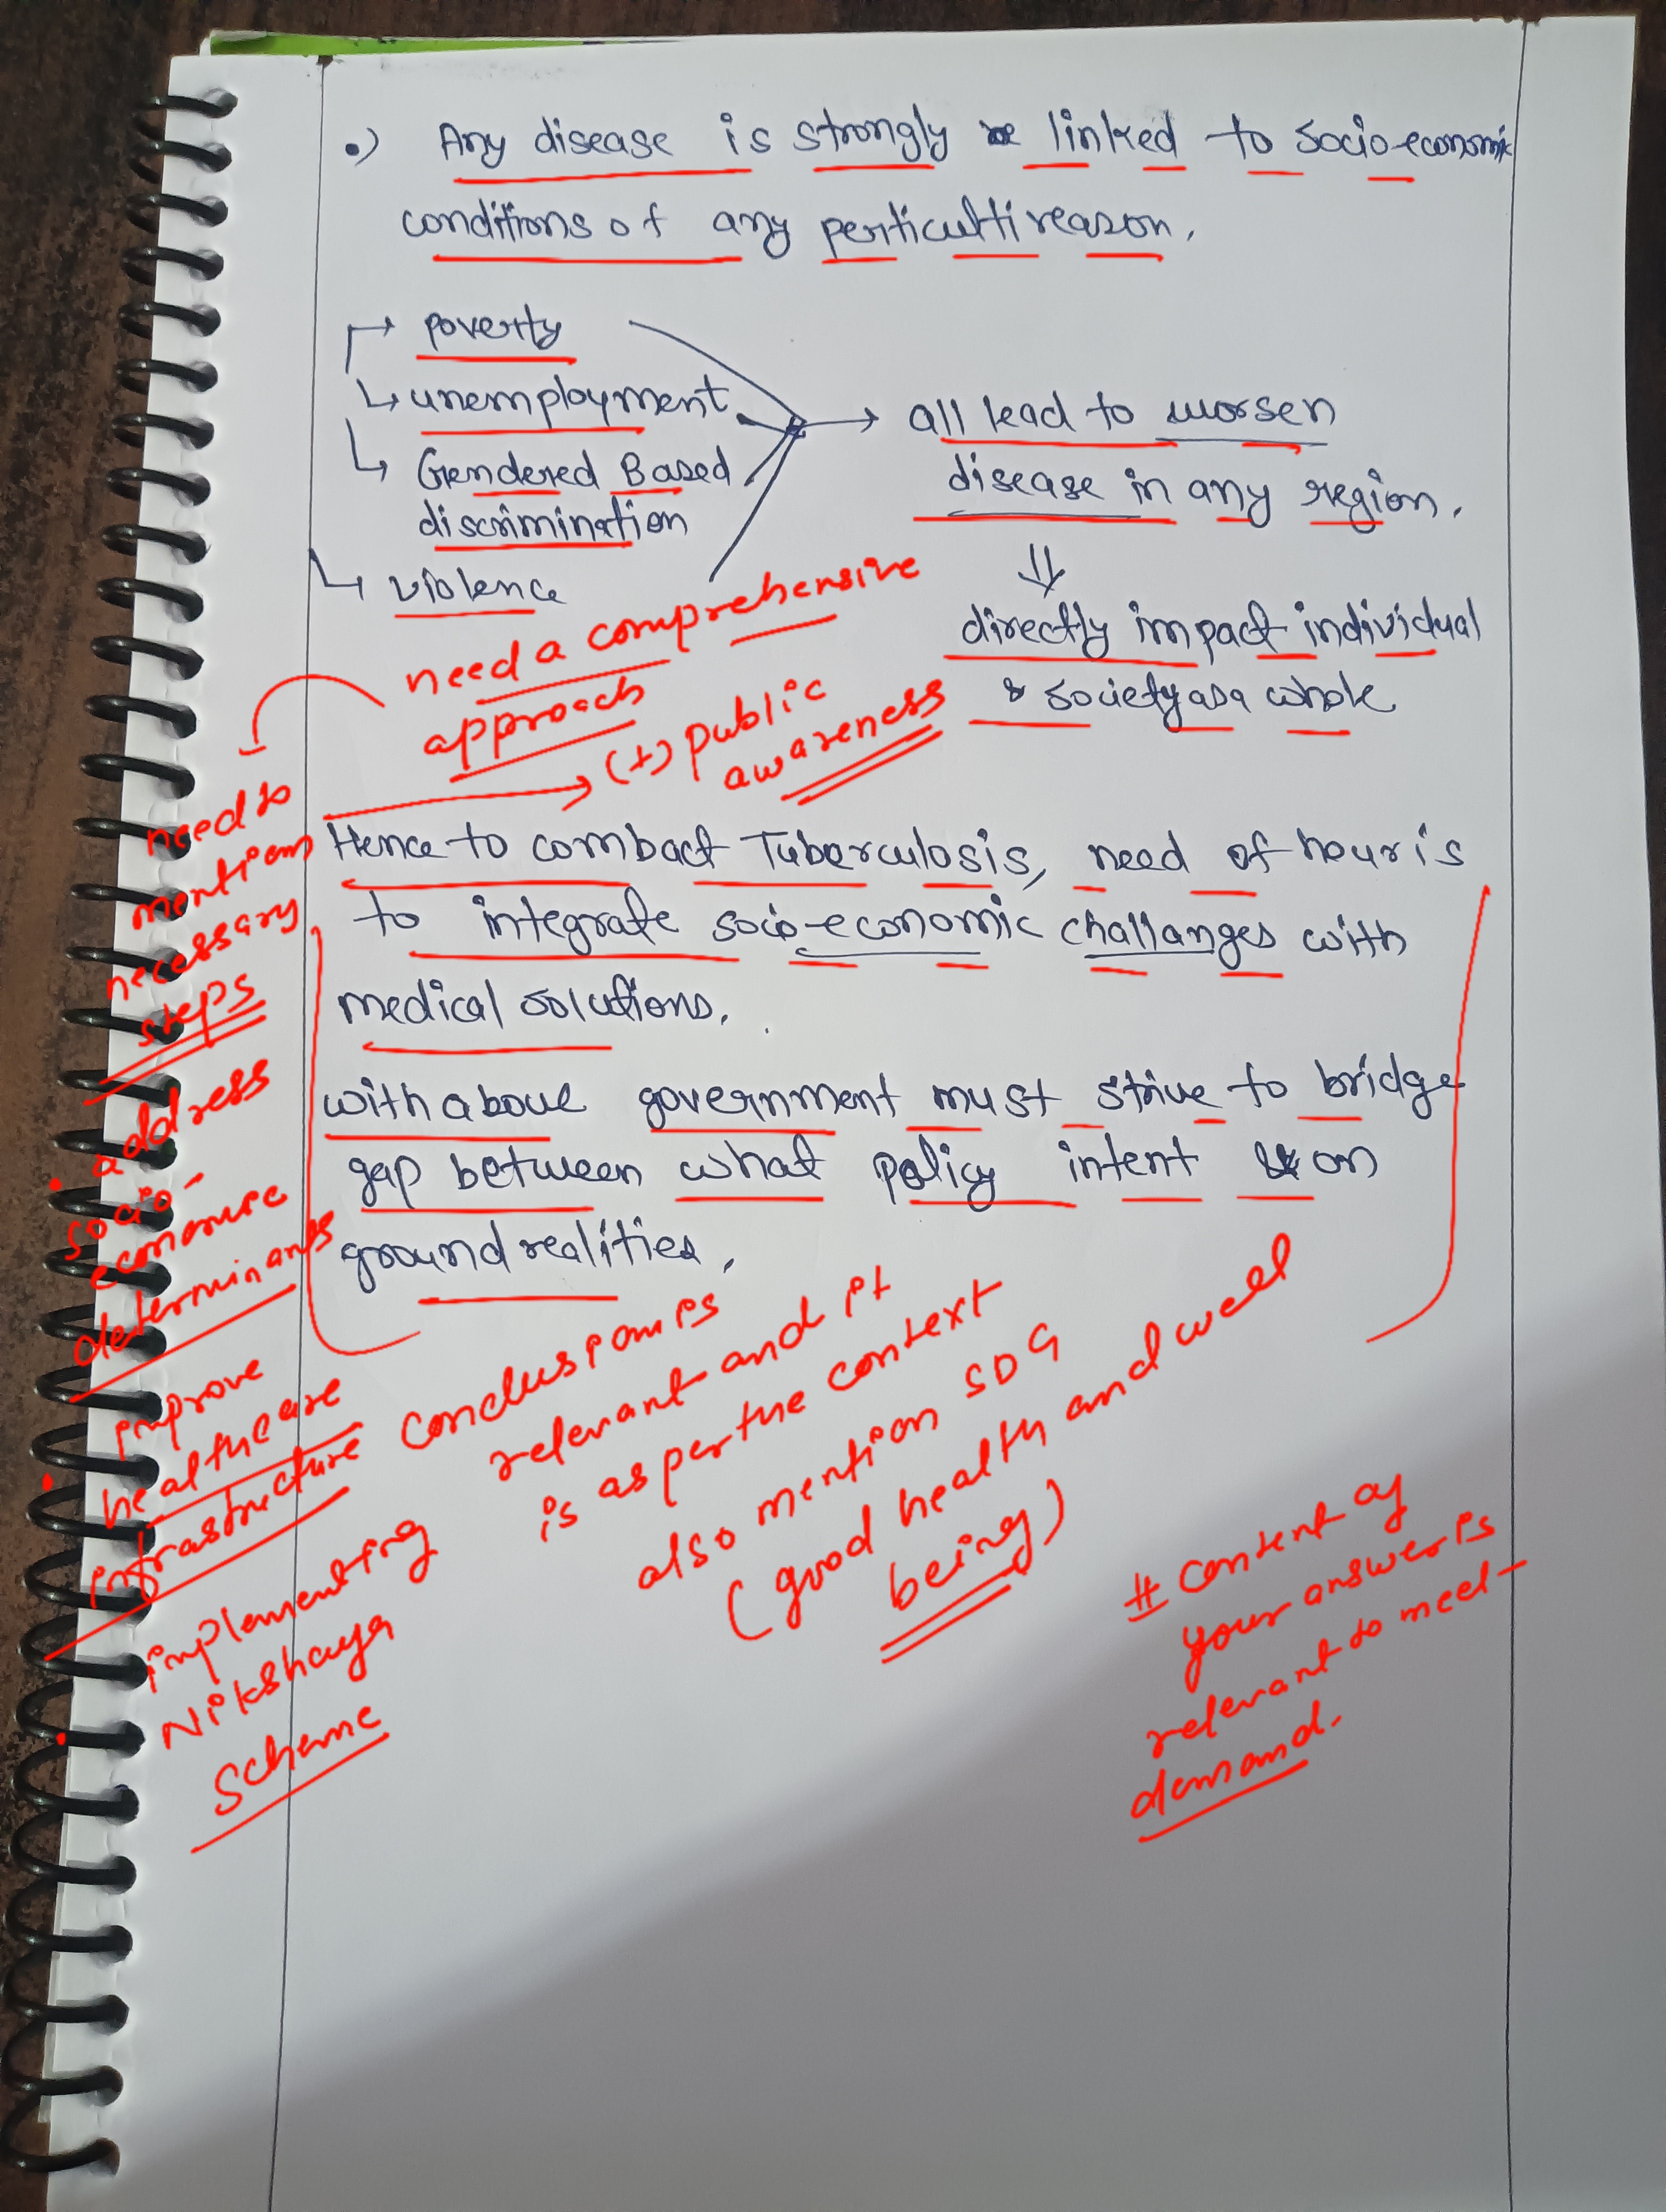 •) Any disease is strongly linked to socio-economic
conditions of any perticulti reason.
→ poverty
↳ unemployment
↳ Gendered Based
discrimination
↳ violence
→ all lead to worsen
disease in any region.
⇓
directly impact individual
& society as a whole
need a comprehensive
approach
(+) public
awareness
need to
mention
necessary
steps
• address
socio-
economic
determinants
• improve
healthcare
infrastructure
• implementing
Nikshaya
Scheme
Hence to combact Tuberculosis, need of hour is
to integrate socio-economic challanges with
medical solutions.
with above government must strive to bridge
gap between what policy intent & on
ground realities.
Conclusion is
relevant and it
is as per the context
also mention SDG
(good health and well
being)
# Content of
your answer is
relevant to meet
demand.